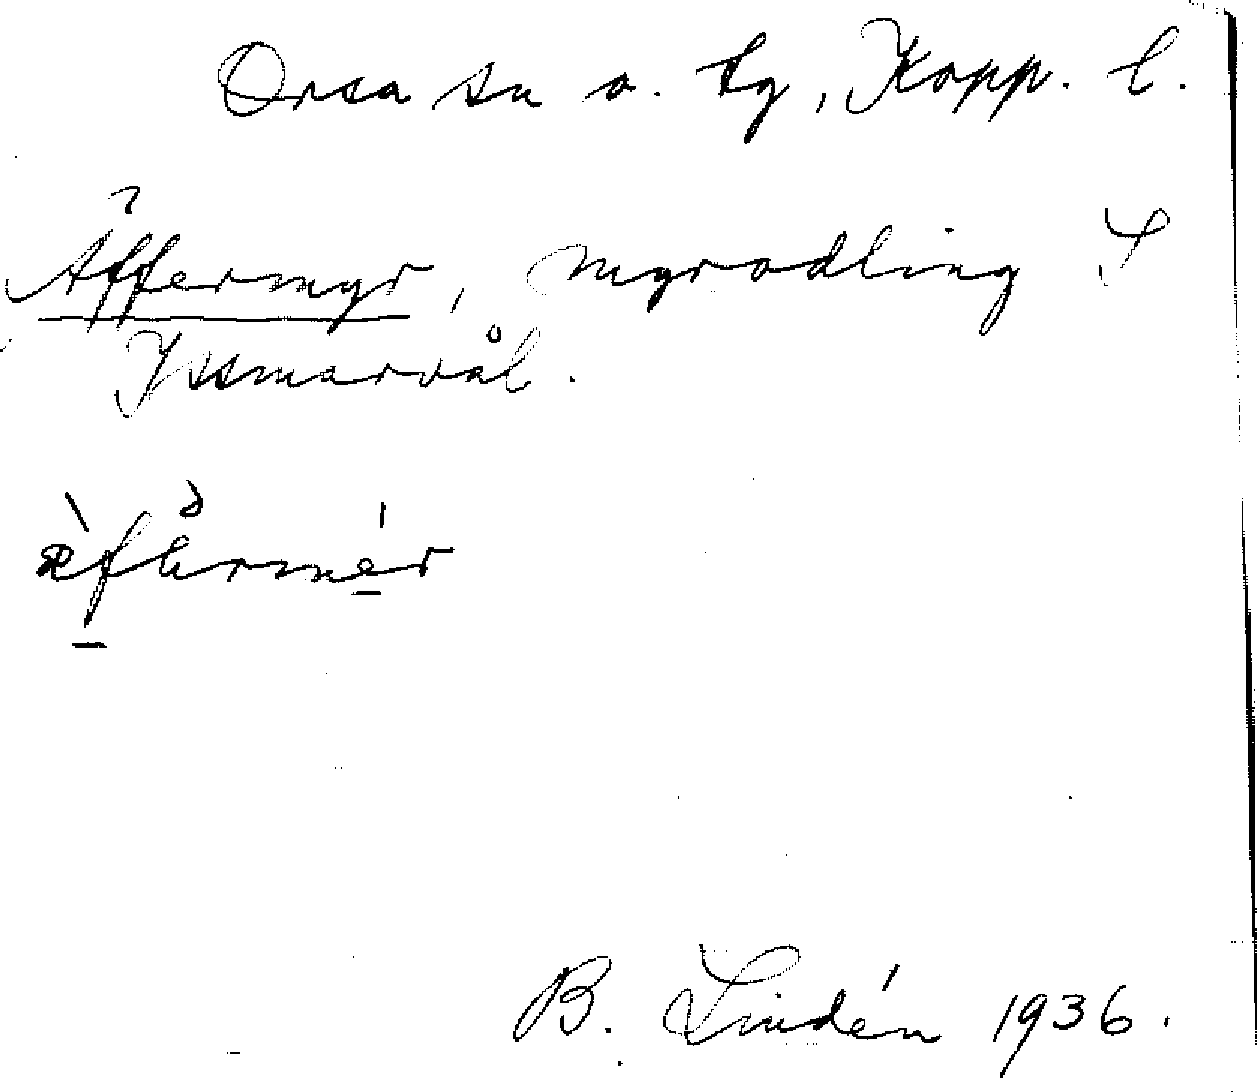 Orsa sn o. tg, Kopp. l.
Äffermyr, myrodling S
Yssmarvål.
æ̀fərmér
B. Lindén 1936.